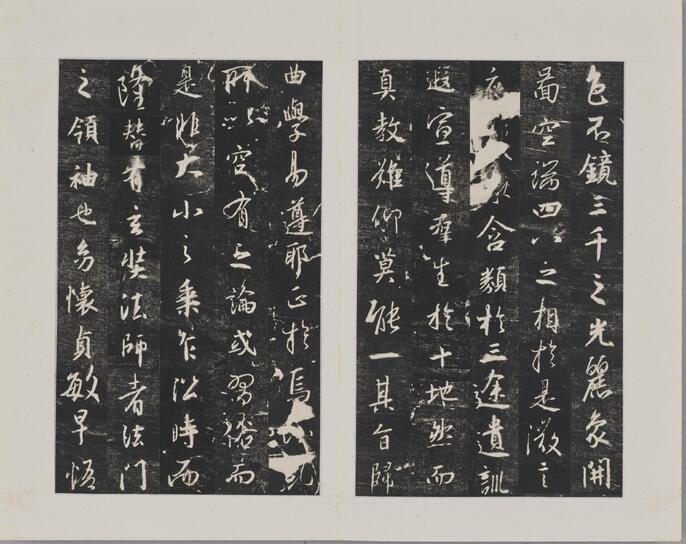 色不鏡三千之光麗象開
啚空端四八之相於是微言
含類於三途遺訓
遐宣導羣生於十地然而
真教難仰莫能一其旨歸
曲學易遵耶正於焉
所以空有之論或習俗而
是非大小之乘乍沿時而
隆替有玄奘法師者法門
之領袖也幼懷貞敏早悟